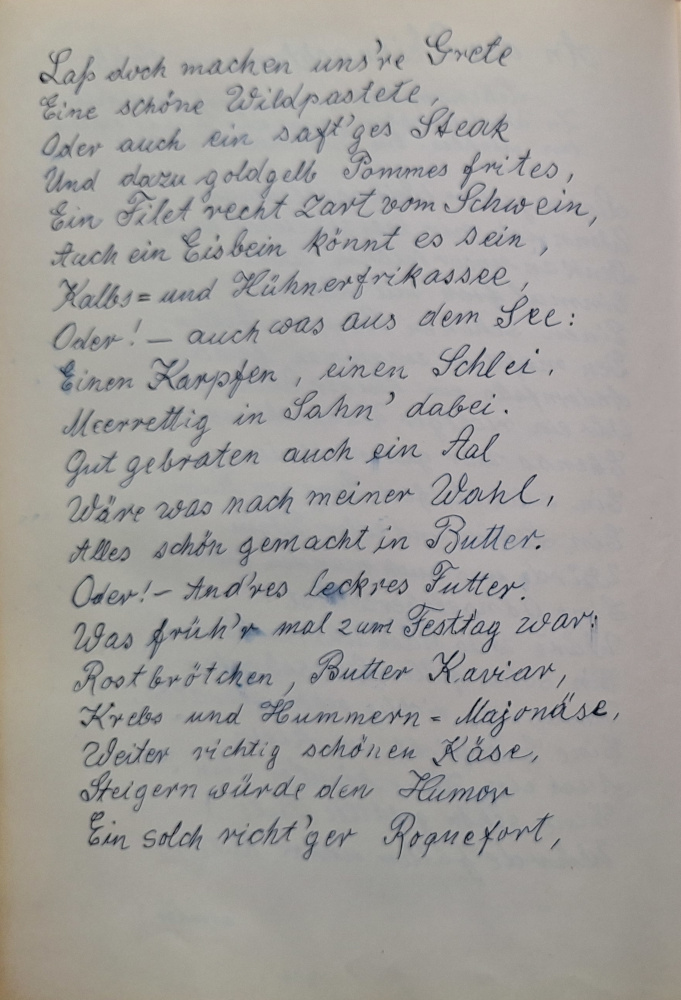 Laß doch machen uns're Grete
Eine schöne Wildpastete,
Oder auch ein saft'ges Steak
Und dazu goldgelb Pommes frites,
Ein Filet recht zart vom Schwein,
Auch ein Eisbein könnt es sein,
Kalbs= und Hühnerfrikassee,
Oder! – auch was aus dem See:
Einen Karpfen, einen Schlei,
Meerrettig in Sahn' dabei.
Gut gebraten auch ein Aal
Wäre was nach meiner Wahl,
Alles schön gemacht in Butter.
Oder! – And'res leckres Futter.
Was früh'r mal zum Festtag war:
Rostbrötchen, Butter Kaviar,
Krebs und Hummern = Majonäse,
Weiter richtig schönen Käse,
Steigern würde den Humor
Ein solch richt'ger Roquefort,